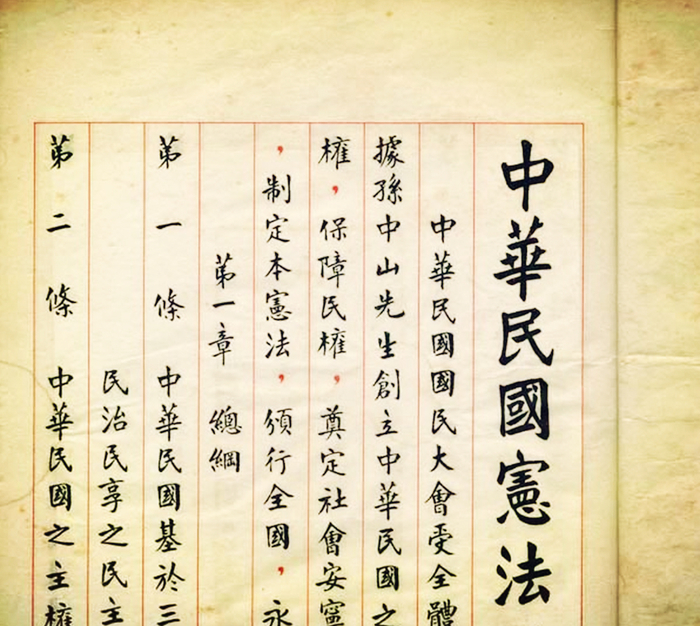 中華民國憲法
中華民國國民大會受全體
據孫中山先生創立中華民國之
權，保障民權，奠定社會安寧
，制定本憲法，頒行全國，永
第一章 總綱
第一條 中華民國基於三
民治民享之民主
第二條 中華民國之主權